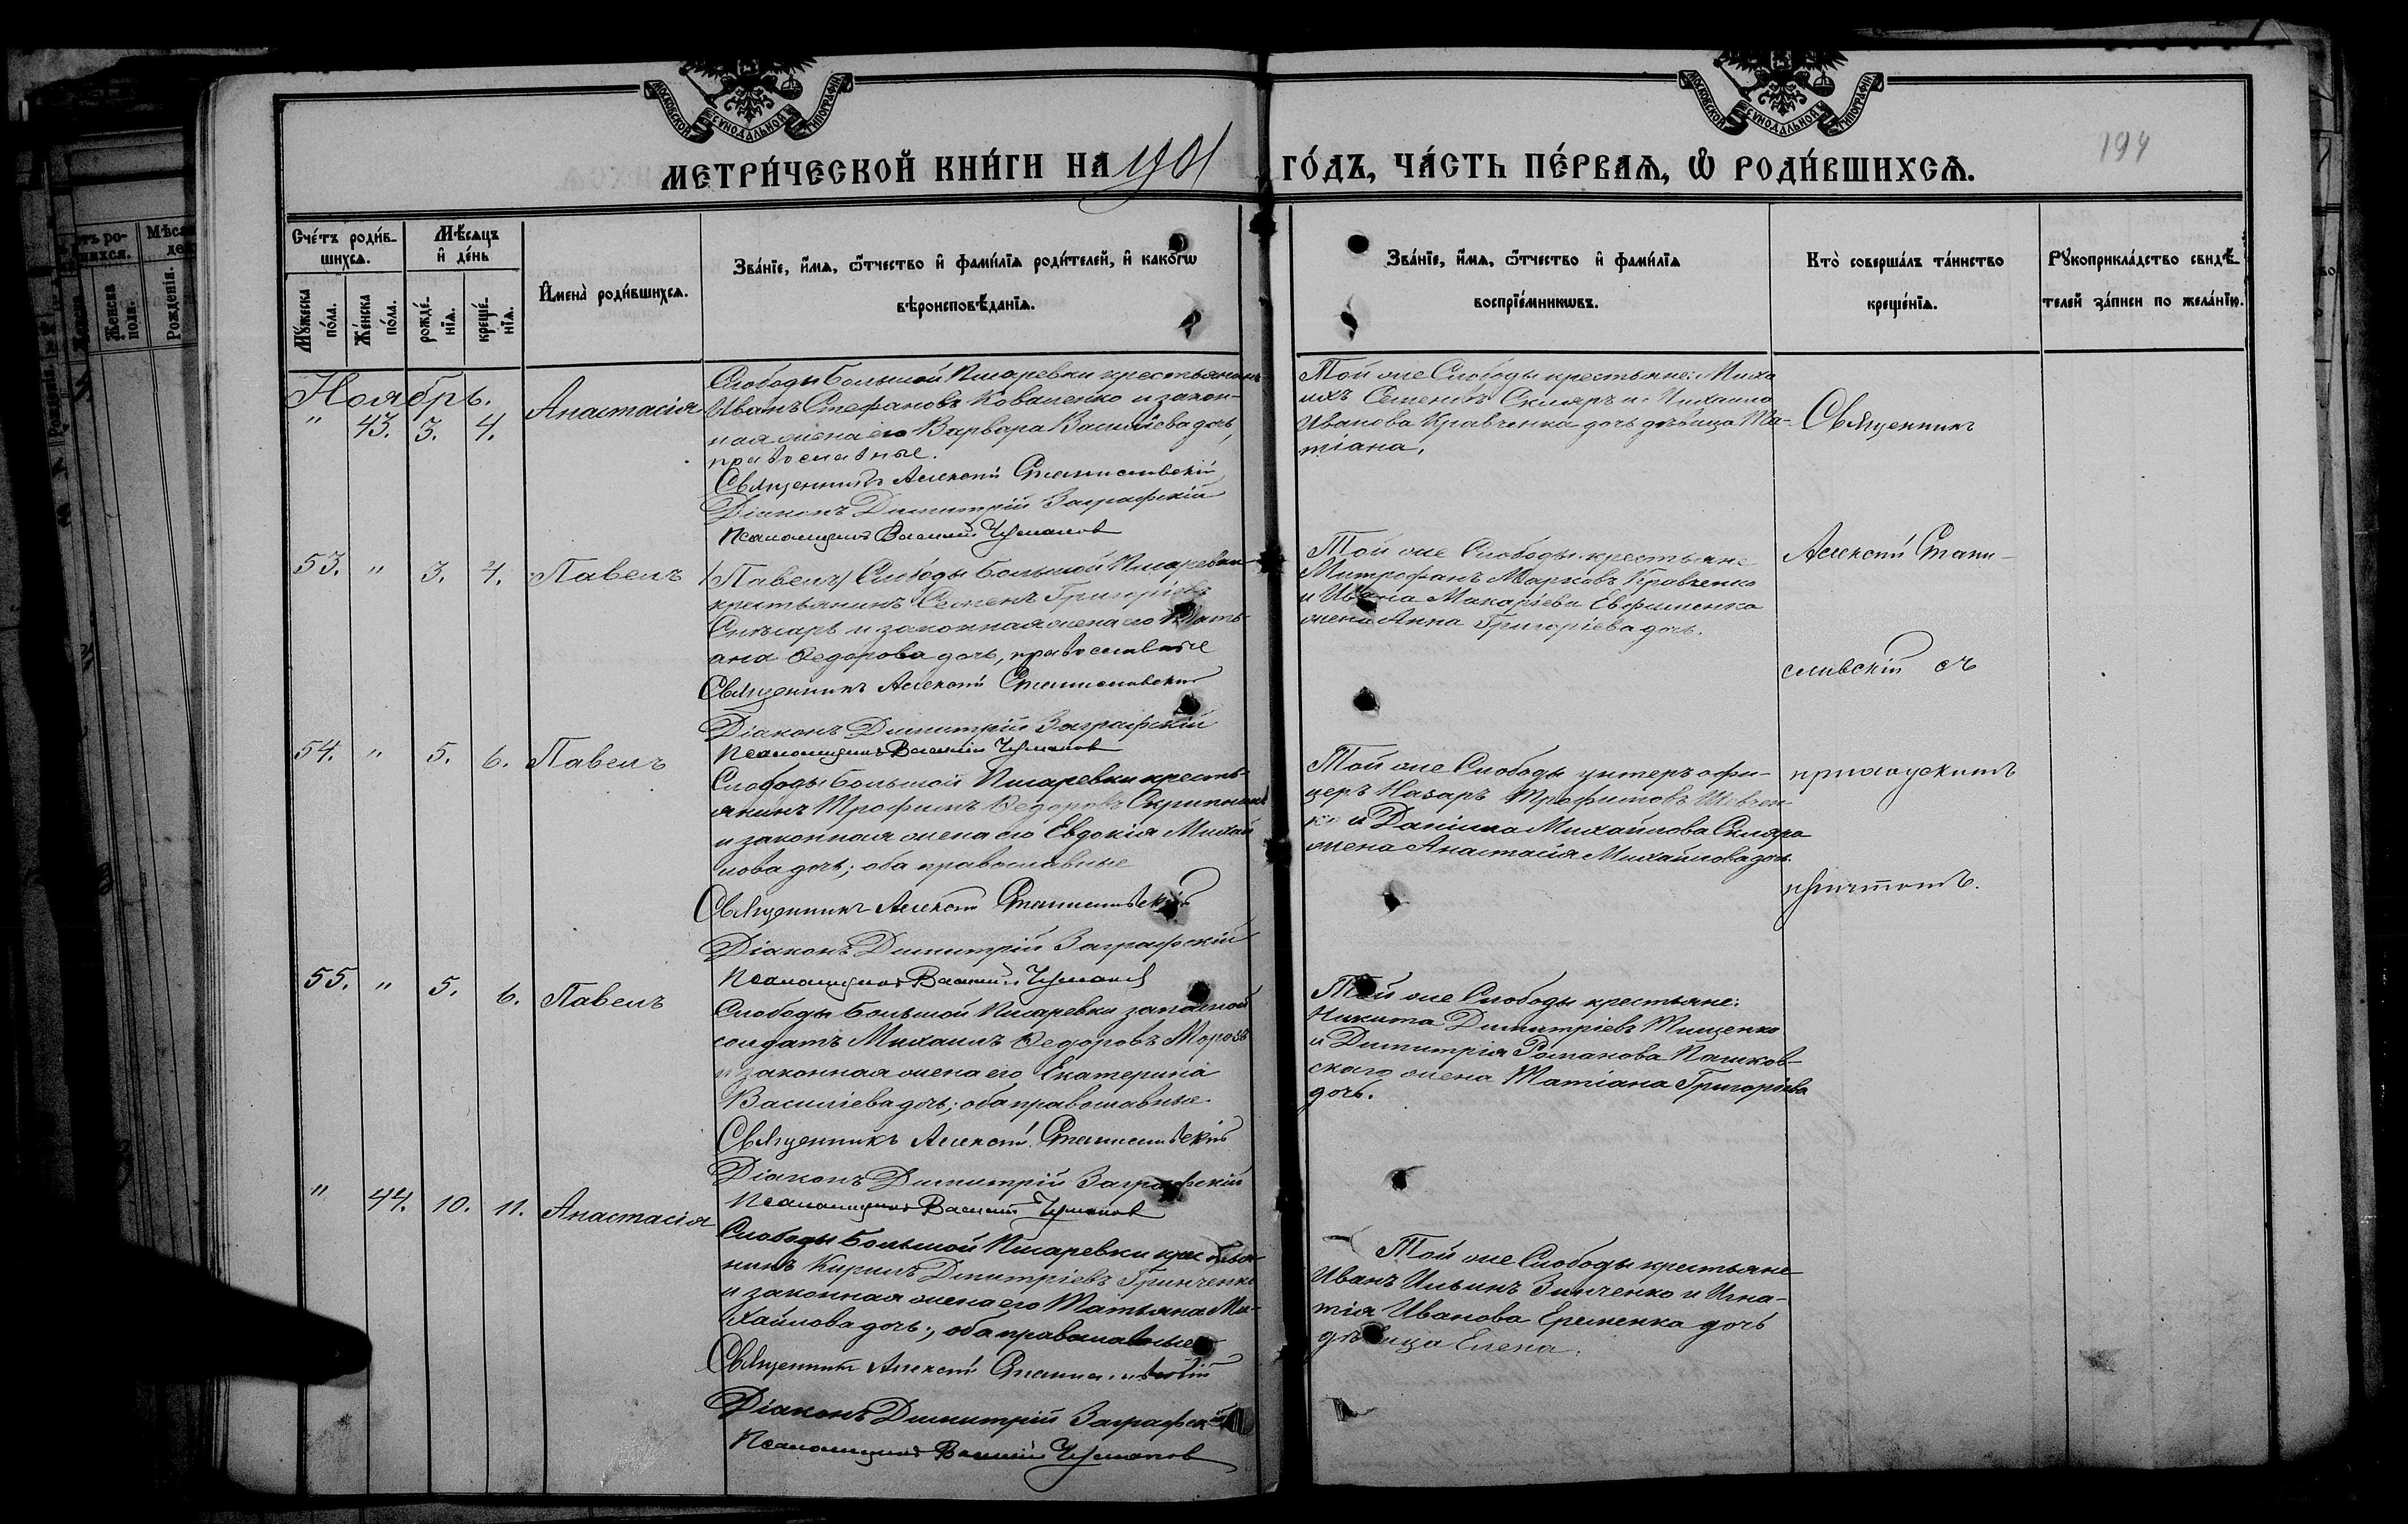 МОСКОВСКОЙ СУНОДАЛЬНОЙ ТИПОГРАФІИ
МОСКОВСКОЙ СУНОДАЛЬНОЙ ТИПОГРАФІИ
194
МЕТРИ́ЧЕСКОЙ КНИ́ГИ НА 1901 ГО́ДЪ, ЧА́СТЬ ПЕ́РВАѦ, Ѡ҆ РОДИ́ВШИХСѦ.
Счётъ роди́вшихсѧ.
Мꙋ́жеска по́ла.
Же́нска по́ла.
Мѣ́сѧцъ и҆ де́нь
рожде́нїѧ.
креще́нїѧ.
И҆мена̀ роди́вшихсѧ.
Зва́нїе, и҆́мѧ, ѻ҆́тчество и҆ фами́лїѧ роди́телей, и҆ како́гѡ
вѣроисповѣ́данїѧ.
Зва́нїе, и҆́мѧ, ѻ҆́тчество и҆ фами́лїѧ
воспрїе́мникѡвъ.
Кто̀ соверша́лъ та́инство
креще́нїѧ.
Рꙋкоприкла́дство свидѣ́-
телей за́писи по жела́нїю.
Ноябрь.
" 43. 3. 4. Анастасія
Слободы Большой Писаревки крестьянинъ
Иванъ Стефановъ Коваленко и закон-
ная жена его Варвара Васильева дочь,
православные.
Священникъ Алексій Станиславскій
Діаконъ Димитрій Заграфскій
Псаломщикъ Василій Чумаков
Той же Слободы крестьяне: Миха
илъ Семеновъ Скляръ и Михаила
Иванова Кравченка дочь дѣвица Та-
тіана.
Священникъ
Алексій Стани-
славскій съ
приходскимъ
причтомъ.
53. " 3. 4. Павелъ
/Павелъ/ Слободы Большой Писаревки
крестьянинъ Семенъ Григоріевъ
Слѣсарь и законная жена его Тать-
яна Ѳедорова дочь, православные
Священникъ Алексій Станиславскій
Діаконъ Димитрій Заграфскій
Псаломщикъ Василій Чумаков
Той же Слободы крестьяне
Митрофанъ Марковъ Кравченко
и Ивана Макаріева Евфименка
жена Анна Григоріева дочь.
54. " 5. 6. Павелъ
Слободы Большой Писаревки кресть-
янинъ Трофимъ Ѳедоровъ Скрипникъ
и законная жена его Евдокія Михай
лова дочь; оба православные
Священникъ Алексій Станиславскій
Діаконъ Димитрій Заграфскій
Псаломщикъ Василій Чумаков
Той же Слободы унтеръ офи-
церъ Назаръ Трофимовъ Шевчен-
ко и Даніила Михайлова Скляра
жена Анастасія Михайлова дочь.
55. " 5. 6. Павелъ
Слободы Большой Писаревки запасной
солдатъ Михаилъ Ѳедоровъ Морозъ
и законная жена его Екатерина
Василіева дочь; оба православные.
Священникъ Алексій Станиславскій
Діаконъ Димитрій Заграфскій
Псаломщикъ Василій Чумаков
Той же Слободы крестьяне:
Никита Димитріевъ Тищенко
и Димитрія Романова Пашков-
скаго жена Татіана Григоріева
дочь.
" 44. 10. 11. Анастасія
Слободы Большой Писаревки крестья
нинъ Кирилъ Димитріевъ Гринченко
и законная жена его Татьяна Ми-
хайлова дочь; оба православные
Священникъ Алексій Станиславскій
Діаконъ Димитрій Заграфскій
Псаломщикъ Василій Чумаков
Той же Слободы крестьяне
Иванъ Ильинъ Зинченко и Игна-
тія Иванова Еременка дочь
дѣвица Елена.